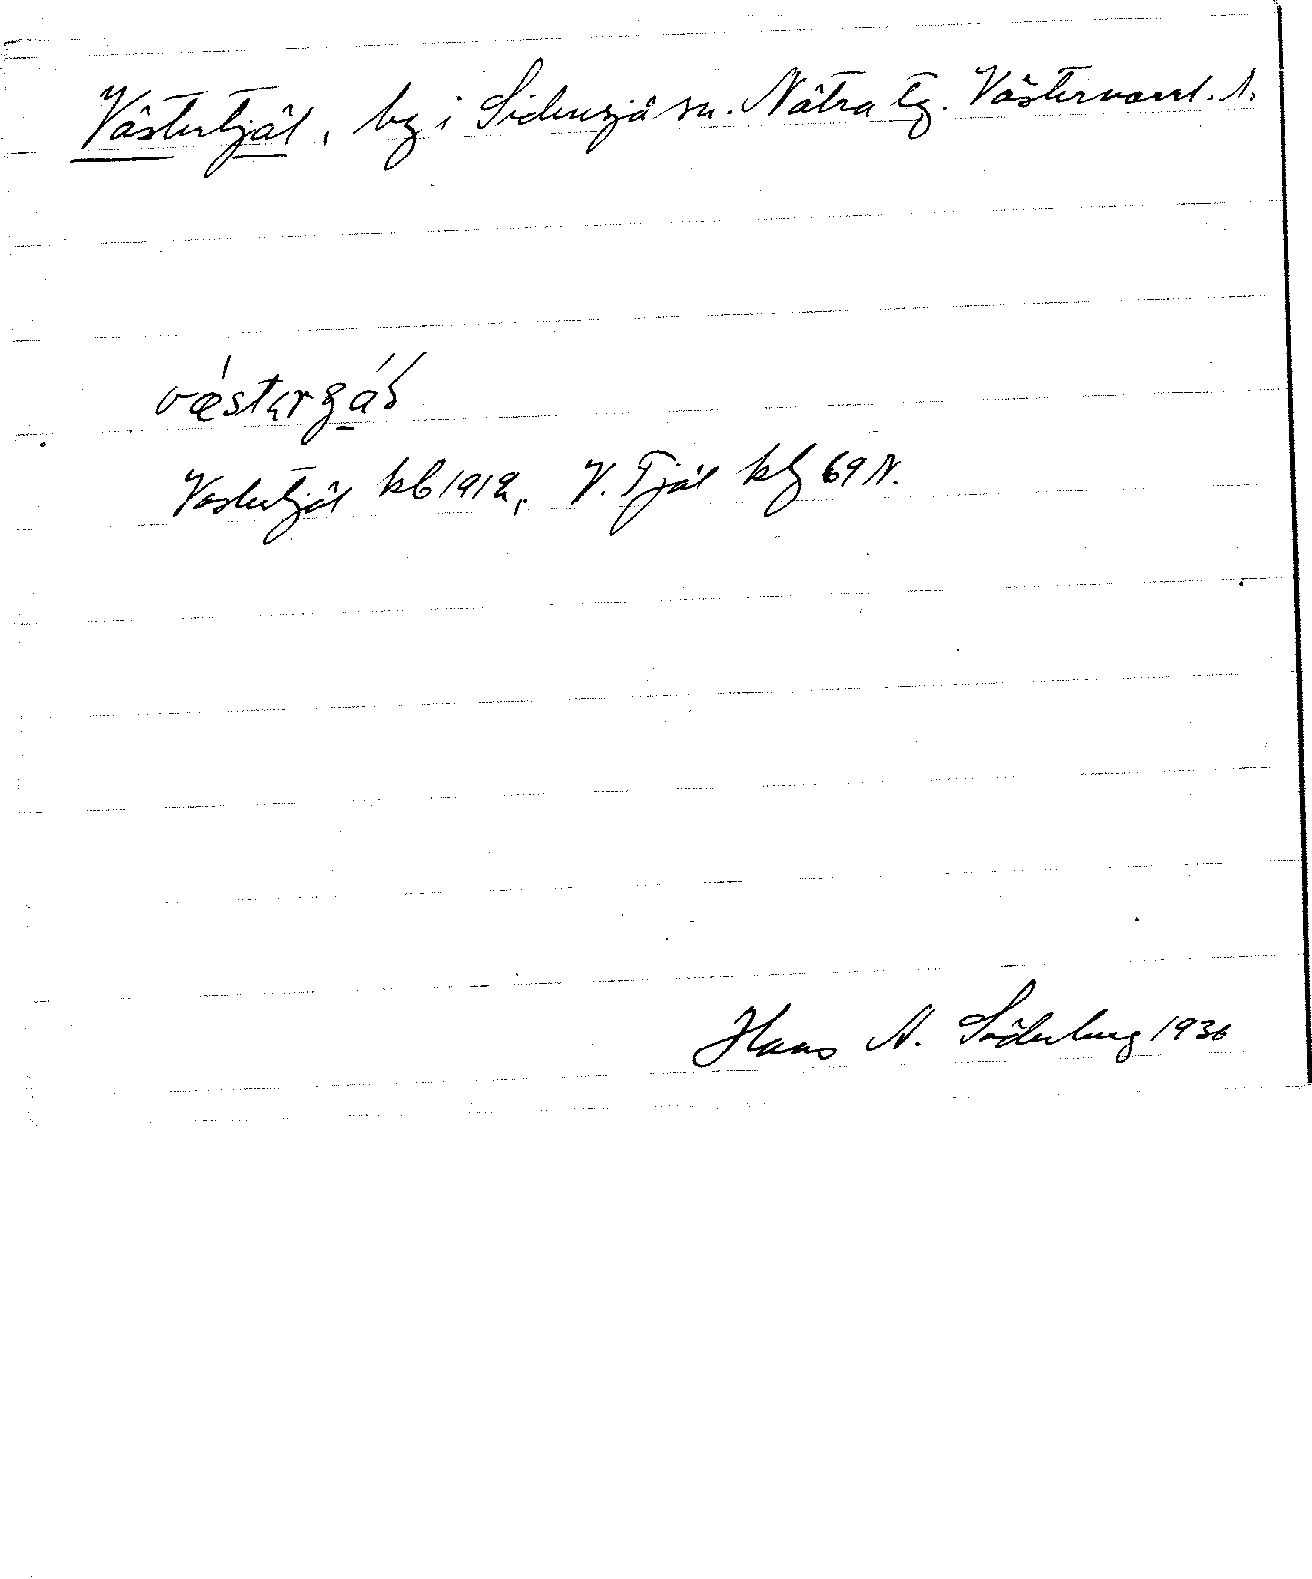 Västertjäl, by i Sidensjö sn. Nätra tg. Västernorrl. l.
væstargás
Vestertjäl kb 1912, V. Tjäl klf 69 N.
Hans A. Söderberg 1936